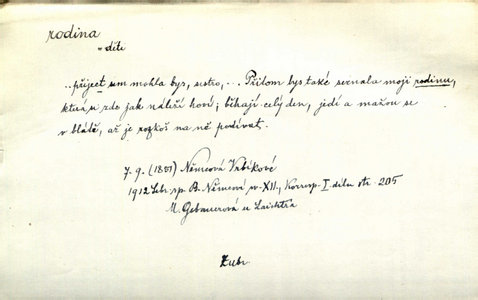 rodina
= děti
.. přijeet sem mohla bys, sestro, ... Přitom bys také seznala moji rodinu,
která, u zde jak náleží hoví; běhají celý den, jedí a mažou se
v blátě, až je rozkoš na ně podívat.
7. 9. (1851) Němcová Vrbíkové
1912 Sebr. sp. B. Němcové sv. XII., Korresp. I. dílu str. 205
M. Gebauerová u Laichtra
Zubr.